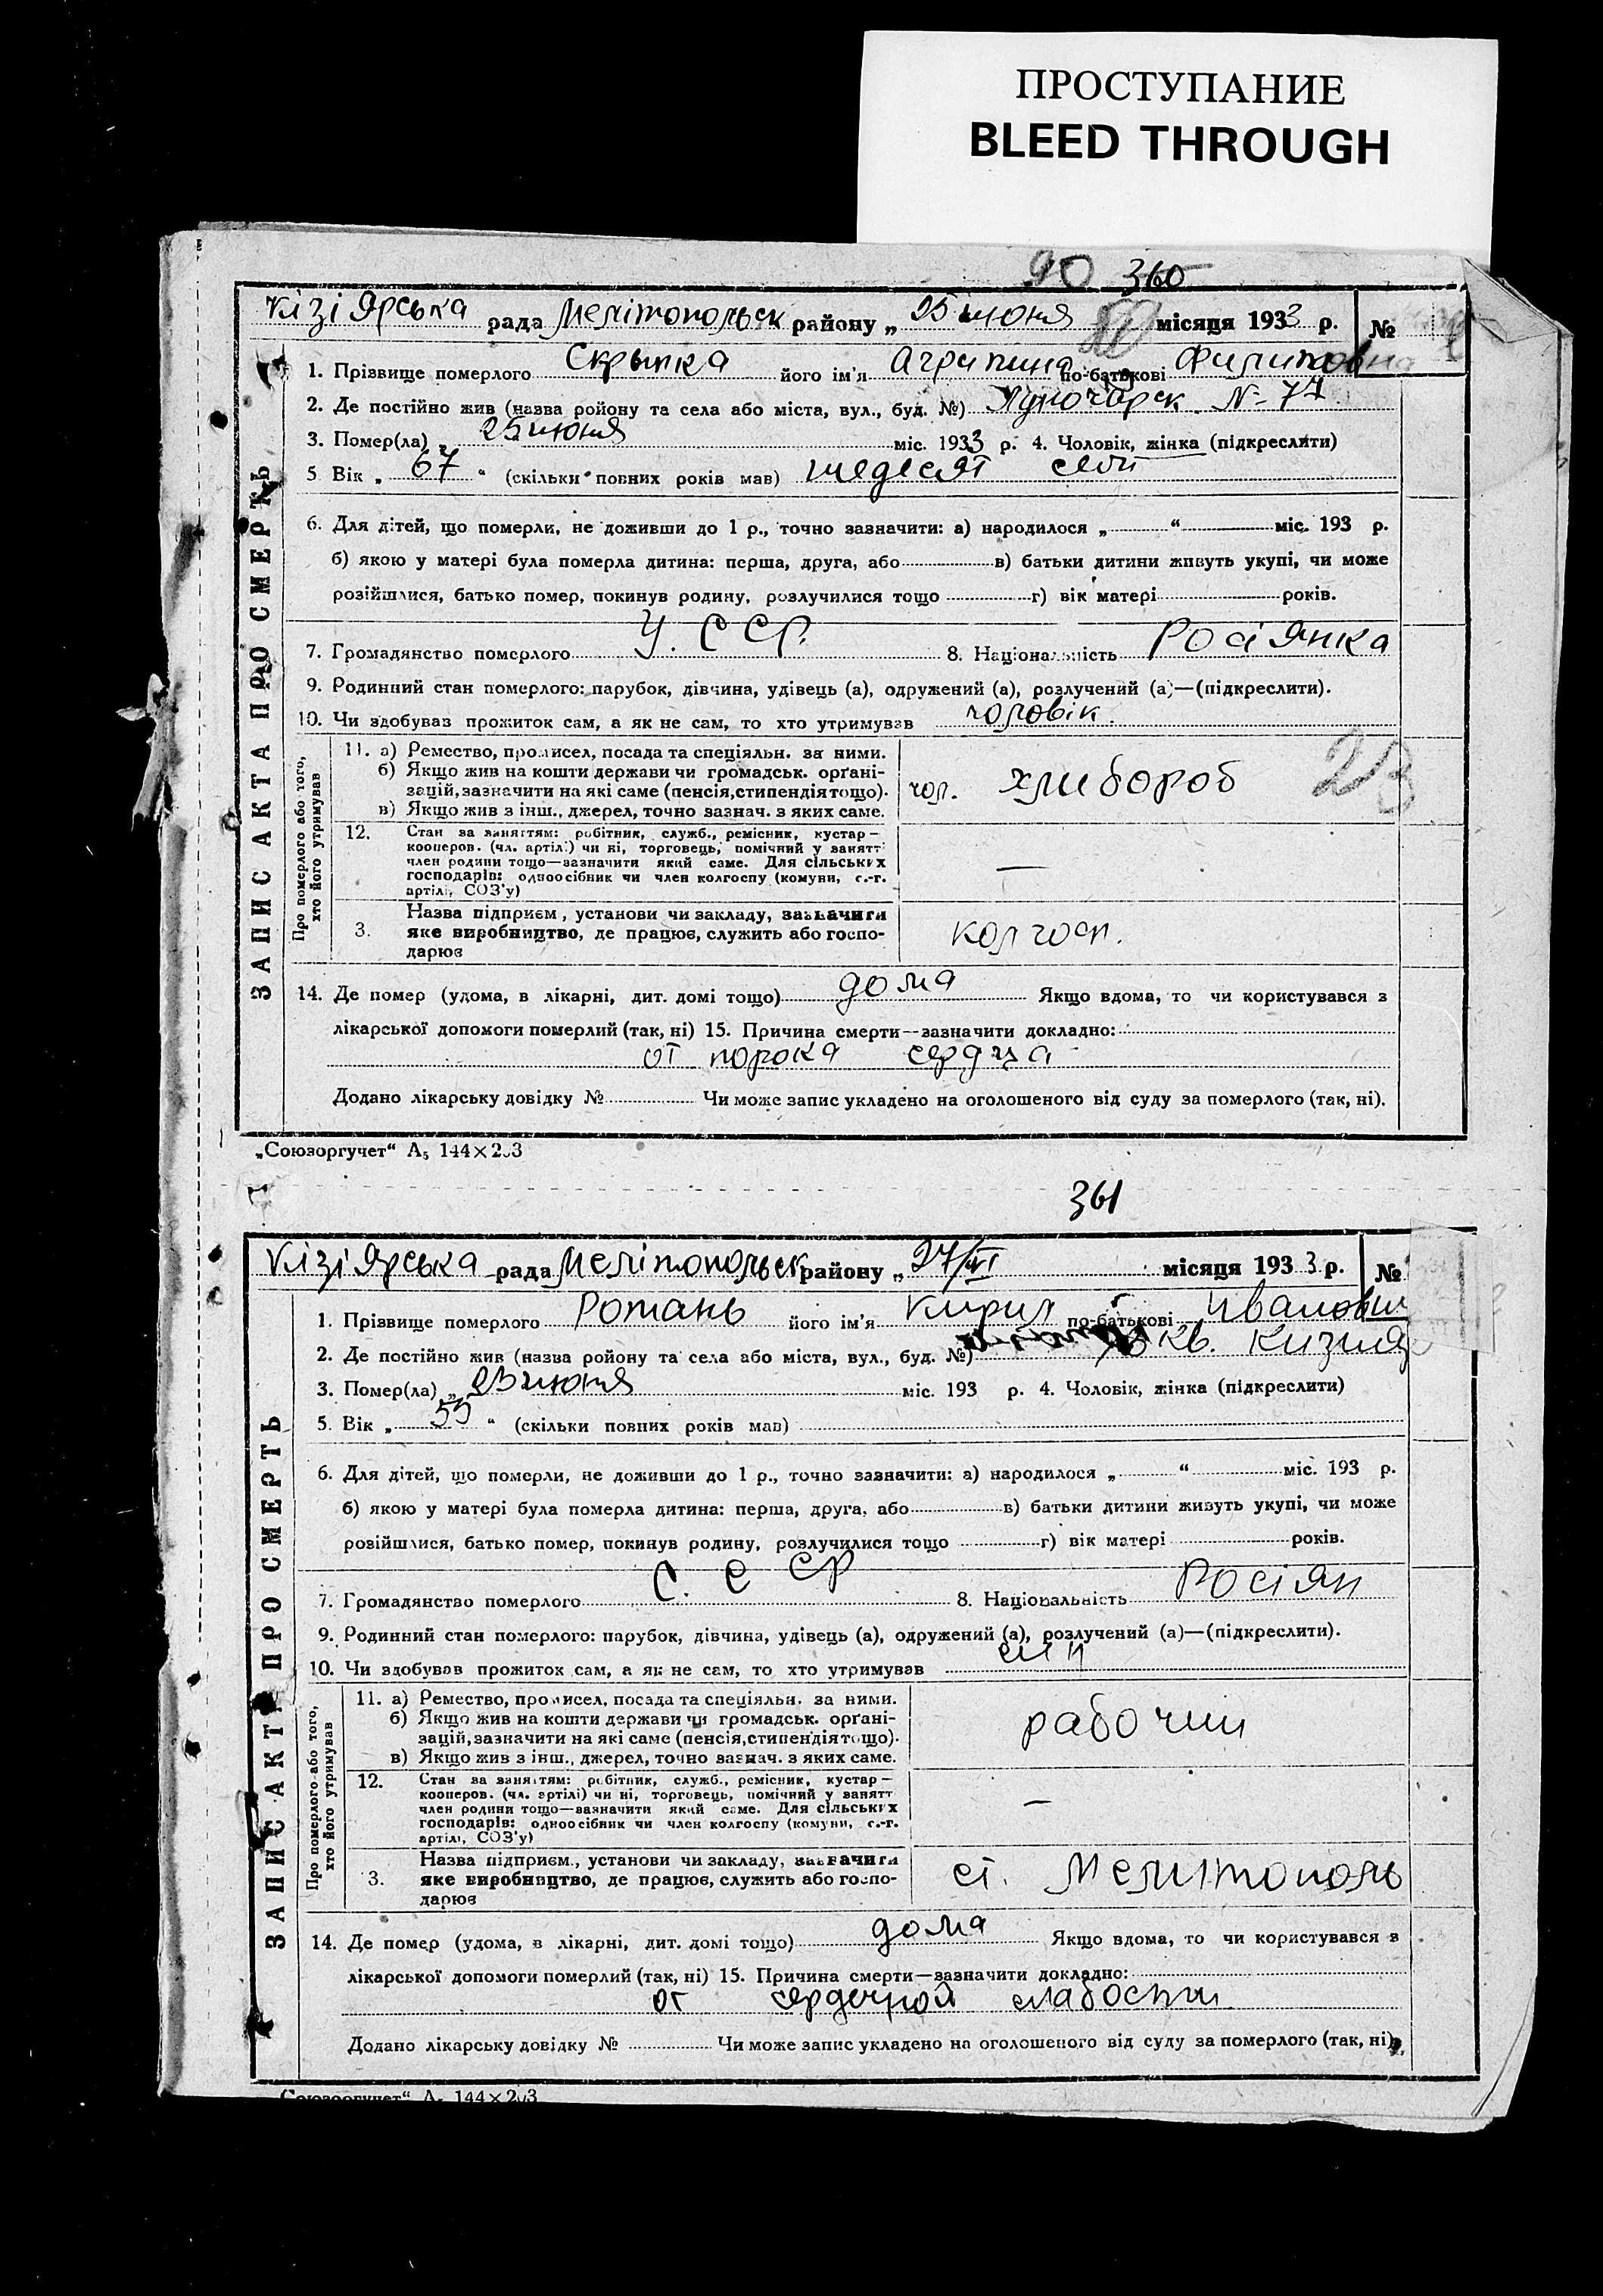 ПРОСТУПАНИЕ
BLEED THROUGH
90 360
Кізі Ярська рада Мелітопольск району „ 25 июня місяця 1933 р. №
1. Прізвище померлого Скрыпка його ім'я Агрипина по-батькові Филиповна
2. Де постійно жив (назва ройону та села або міста, вул., буд. №) Луночарск. № 77
3. Помер(ла) „ 25 июня міс. 1933 р. 4. Чоловік, жінка (підкреслити)
5 Вік „ 67 “ (скільки повних років мав) шедесят семь
6. Для дітей, що померли, не доживши до 1 р., точно зазначити: а) народилося „ “ міс. 193 р.
б) якою у матері була померла дитина: перша, друга, або в) батьки дитини живуть укупі, чи може
розійшлися, батько помер, покинув родину, розлучилися тощо г) вік матері років.
7. Громадянство померлого У. С С Р. 8. Національність Росіянка
9. Родинний стан померлого: парубок, дівчина, удівець (а), одружений (а), розлучений (а)—(підкреслити).
10. Чи здобував прожиток сам, а як не сам, то хто утримував чоловік.
ЗАПИС АКТА ПРО СМЕРТЬ
Про померлого або того, хто його утримував
11. а) Ремество, промисел, посада та спеціяльн. за ними.
б) Якщо жив на кошти держави чи громадськ. орґані-
зацій, зазначити на які саме (пенсія, стипендія тощо).
в) Якщо жив з інш., джерел, точно зазнач. з яких саме.
чол. хлибороб 23
12. Стан за заняттям: робітник, служб., ремісник, кустар—
кооперов. (чл. артілі) чи ні, торговець, помічний у занятт
член родини тощо—зазначити який саме. Для сільських
господарів: одноосібник чи член колгоспу (комуни, с.-г.
артілі, СОЗ'у)
—
3. Назва підприєм., установи чи закладу, зазначити
яке виробництво, де працює, служить або госпо-
дарює
колгосп.
14. Де помер (удома, в лікарні, дит. домі тощо) дома Якщо вдома, то чи користувався з
лікарської допомоги померлий (так, ні) 15. Причина смерти—зазначити докладно:
от порока сердца
Додано лікарську довідку № Чи може запис укладено на оголошеного від суду за померлого (так, ні).
„Союзоргучет“ А5 144×203
361
Кізі Ярська рада Мелітопольск району „ 27/VI місяця 1933 р. №
1. Прізвище померлого Ротань його ім'я Кирил по-батькові Иванович
2. Де постійно жив (назва ройону та села або міста, вул., буд. №) кв. Кизияр
3. Помер(ла) „ 23 июня міс. 193 р. 4. Чоловік, жінка (підкреслити)
5. Вік „ 55 “ (скільки повних років мав)
6. Для дітей, що померли, не доживши до 1 р., точно зазначити: а) народилося „ “ міс. 193 р.
б) якою у матері була померла дитина: перша, друга, або в) батьки дитини живуть укупі, чи може
розійшлися, батько помер, покинув родину, розлучилися тощо г) вік матері років.
7. Громадянство померлого С. С СР 8. Національність Росіян
9. Родинний стан померлого: парубок, дівчина, удівець (а), одружений (а), розлучений (а)—(підкреслити).
10. Чи здобував прожиток сам, а як не сам, то хто утримував
ЗАПИС АКТА ПРО СМЕРТЬ
Про померлого або того, хто його утримував
11. а) Ремество, промисел, посада та спеціяльн. за ними.
б) Якщо жив на кошти держави чи громадськ. орґані-
зацій, зазначити на які саме (пенсія, стипендія тощо).
в) Якщо жив з інш., джерел, точно зазнач. з яких саме.
рабочий
12. Стан за заняттям: робітник, служб., ремісник, кустар—
кооперов. (чл. артілі) чи ні, торговець, помічний у занятт
член родини тощо—зазначити який саме. Для сільських
господарів: одноосібник чи член колгоспу (комуни, с.-г.
артілі, СОЗ'у)
—
3. Назва підприєм., установи чи закладу, зазначити
яке виробництво, де працює, служить або госпо-
дарює
ст. Мелитополь
14. Де помер (удома, в лікарні, дит. домі тощо) дома Якщо вдома, то чи користувався з
лікарської допомоги померлий (так, ні) 15. Причина смерти—зазначити докладно:
от сердечной слабости
Додано лікарську довідку № Чи може запис укладено на оголошеного від суду за померлого (так, ні).
„Союзоргучет“ А5 144×203